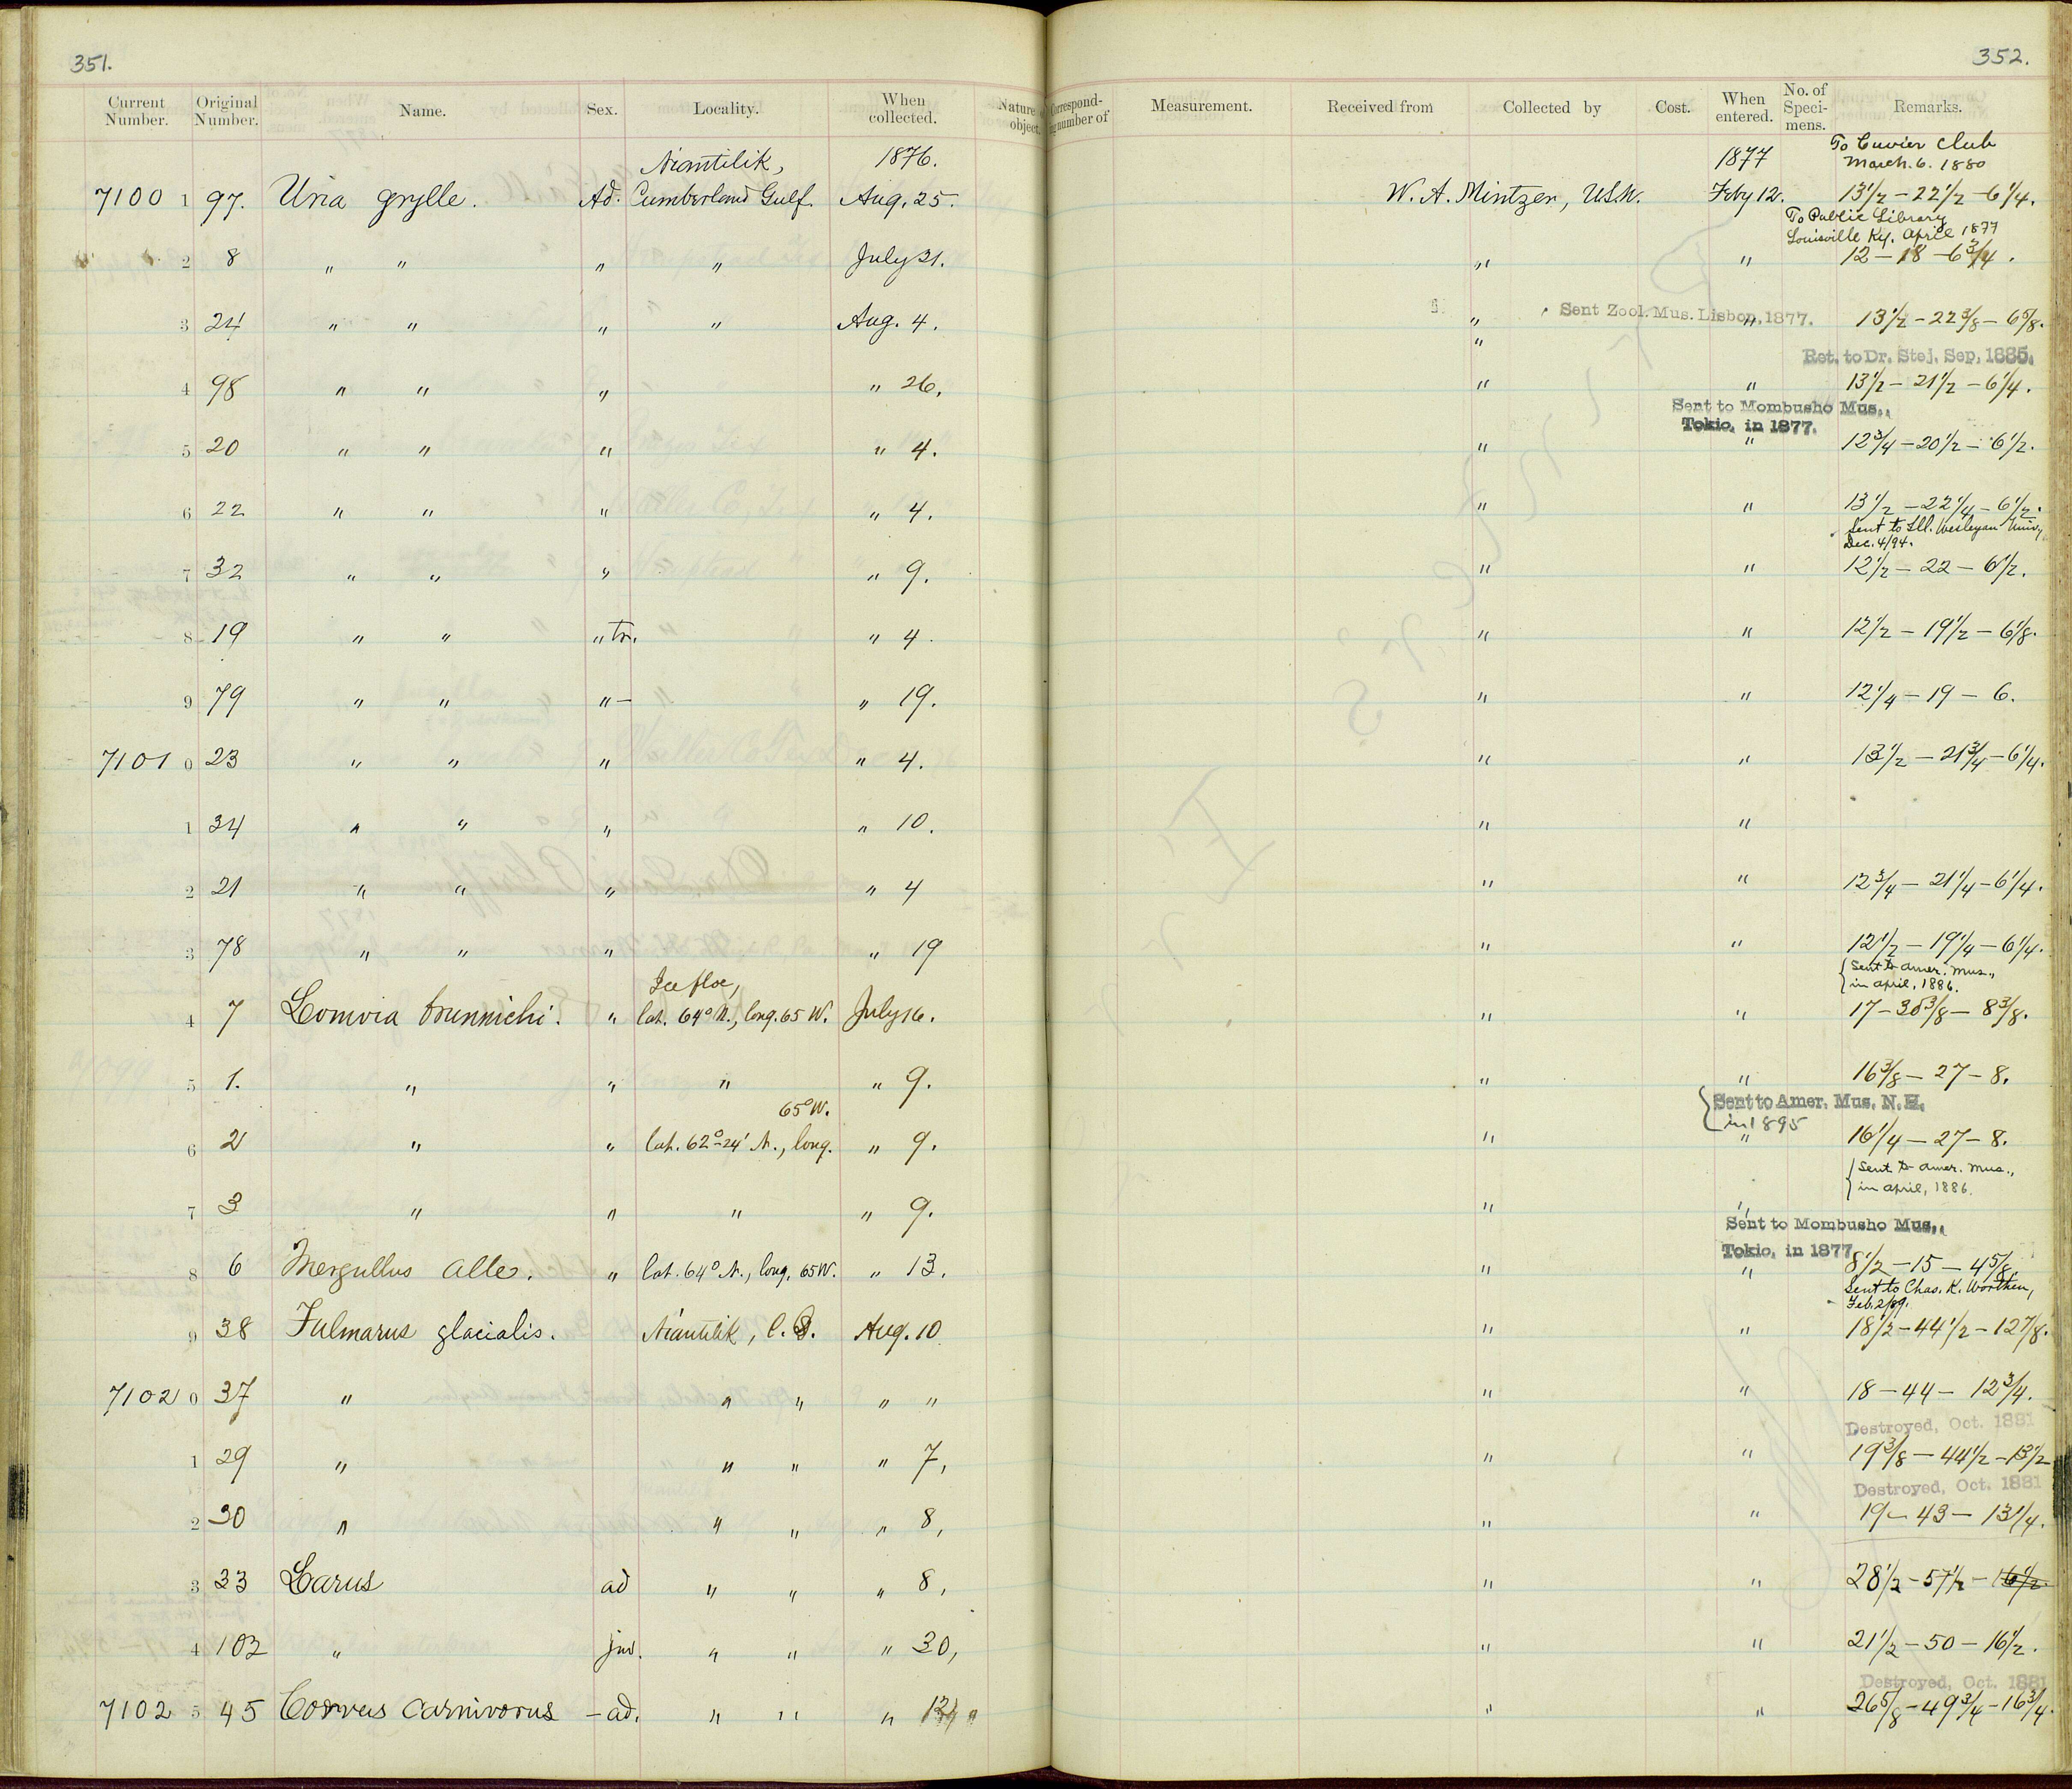 351.
352.
Current Number. Original Number. Name. Sex. Locality. When collected. Nature object. Correspond- number of Measurement. Received from Collected by Cost. When entered. No. of Speci- mens. Remarks.
Niantilik, 1876. 1877 To Cuvier Club
March. 6. 1880
7100 1 97. Uria grylle. Ad. Cumberland Gulf. Aug. 25. W. A. Mintzer, U.S.N. Feby 12. 13 1/2 – 22 1/2 – 6 1/4.
To Public Library
Louisville Ky. April 1877
2 8 " " " " July 31. " " 12 – 18 – 6 3/4.
3 24 " " " " Aug. 4. " Sent Zool. Mus. Lisbon, 1877. " 13 1/2 – 22 3/8 – 6 5/8.
"
Ret. to Dr. Stej. Sep. 1885.
4 98 " " " " 26. " " 13 1/2 – 21 1/2 – 6 1/4.
Sent to Mombusho Mus.,
Tokio, in 1877.
5 20 " " " " 4. " " 12 3/4 – 20 1/2 – 6 1/2.
6 22 " " " " 4. " " 13 1/2 – 22 1/4 – 6 1/2.
Sent to Ill. Wesleyan Univy
Dec. 4/94.
7 32 " " " " 9. " " 12 1/2 – 22 – 6 1/2.
8 19 " " " tr. " 4. " " 12 1/2 – 19 1/2 – 6 1/8.
9 79 " " " – " 19. " " 12 1/4 – 19 – 6.
7101 0 23 " " " " 4. " " 13 1/2 – 21 3/4 – 6 1/4.
1 34 " " " " 10. " "
2 21 " " " " 4 " " 12 3/4 – 21 1/4 – 6 1/4.
3 78 " " " " 19 " " 12 1/2 – 19 1/4 – 6 1/4.
Ice floe, Sent to Amer. Mus.,
in April, 1886.
4 7 Lomvia brunnichi. " lat. 64° N., long. 65 W. July 16. " " 17 – 30 3/8 – 8 3/8.
5 1. " " " " 9. " " 16 3/8 – 27 – 8.
65° W. Sent to Amer. Mus. N. H.
in 1895
6 2 " " lat. 62°–24' N., long. " 9. " " 16 1/4 – 27 – 8.
Sent to Amer. Mus.,
in April, 1886.
7 3 " " " " 9. " "
Sent to Mombusho Mus.,
Tokio, in 1877
8 6 Mergullus alle. " lat. 64° N., long. 65 W. " 13. " " 8 1/2 – 15 – 4 5/8
Sent to Chas. K. Worthen,
Feb. 2/89.
9 38 Fulmarus glacialis. Niantilik, C. Aug. 10 " " 18 1/2 – 44 1/2 – 12 7/8.
7102 0 37 " " " " " " " 18 – 44 – 12 3/4.
Destroyed, Oct. 1881
1 29 " " " " 7, " " 19 3/8 – 44 1/2 – 13 1/2
Destroyed, Oct. 1881
2 30 " " " " 8, " " 19 – 43 – 13 1/4.
3 33 Larus ad " " " 8, " " 28 1/2 – 57 1/2 – 16 1/2
4 102 " juv. " " " 30, " " 21 1/2 – 50 – 16 1/2.
Destroyed, Oct. 1881
7102 5 45 Corvus carnivorus – ad. " " " " " 26 5/8 – 49 3/4 – 16 3/4.